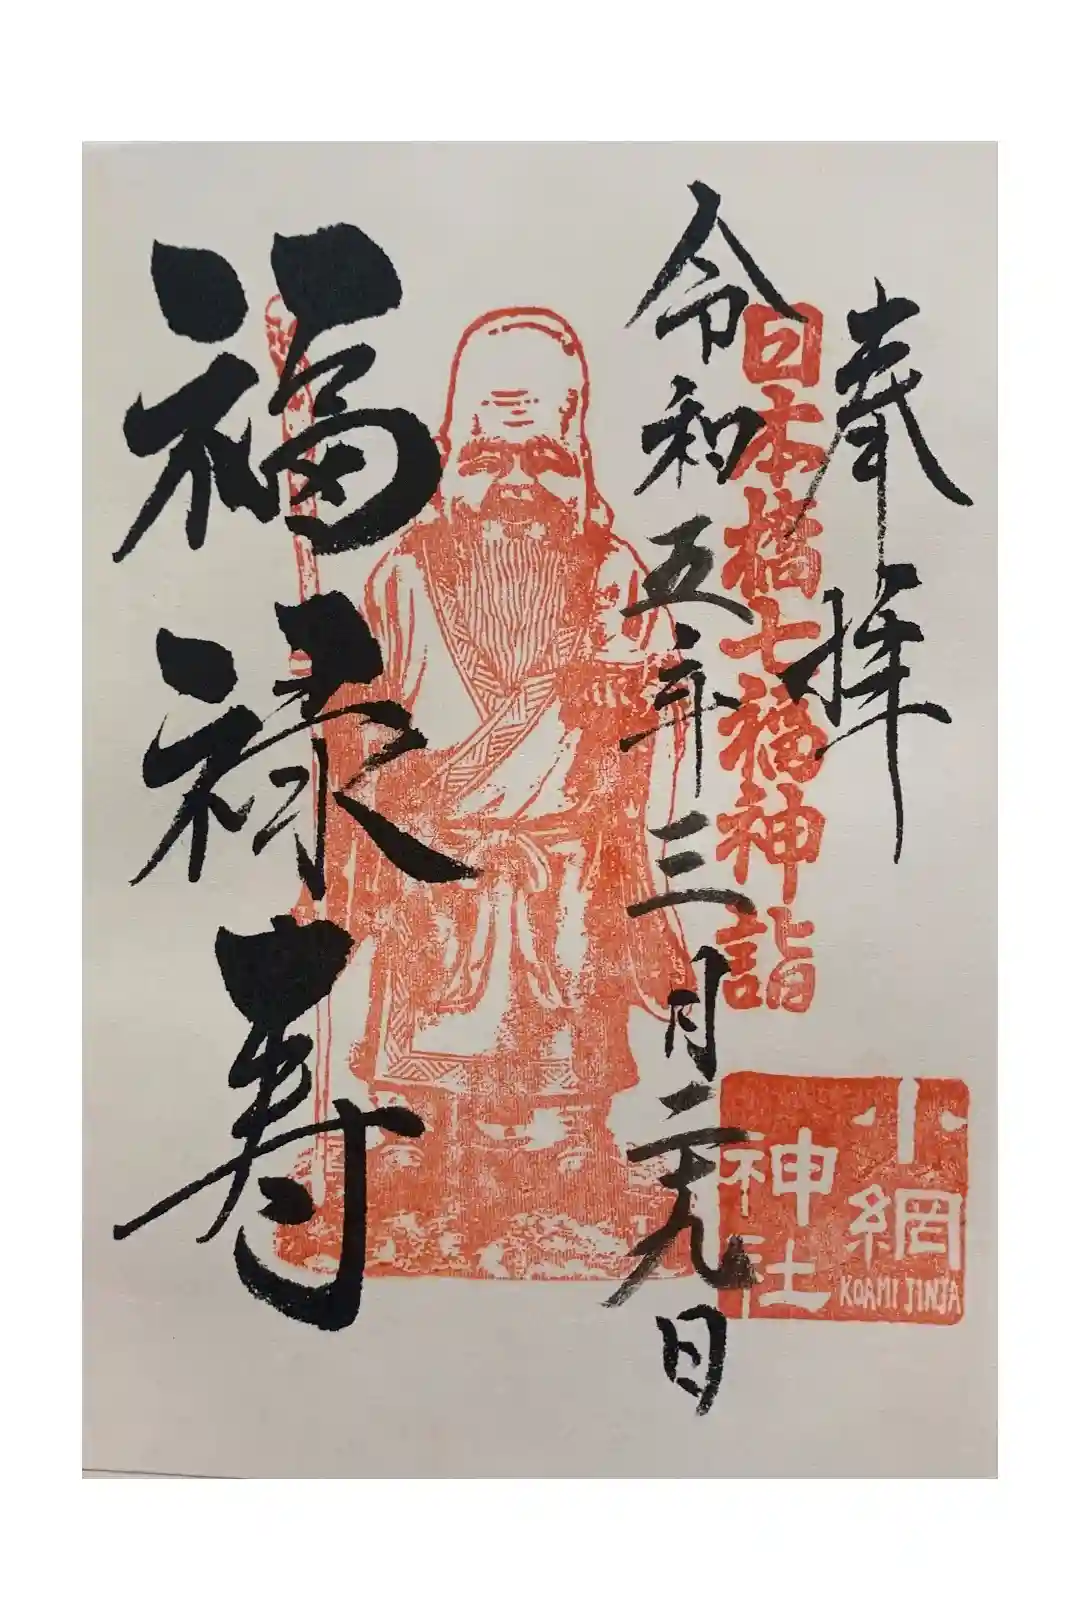 奉拝
日本橋七福神詣
小網
神社
KOAMI JINJA
令和五年三月元日
福禄寿